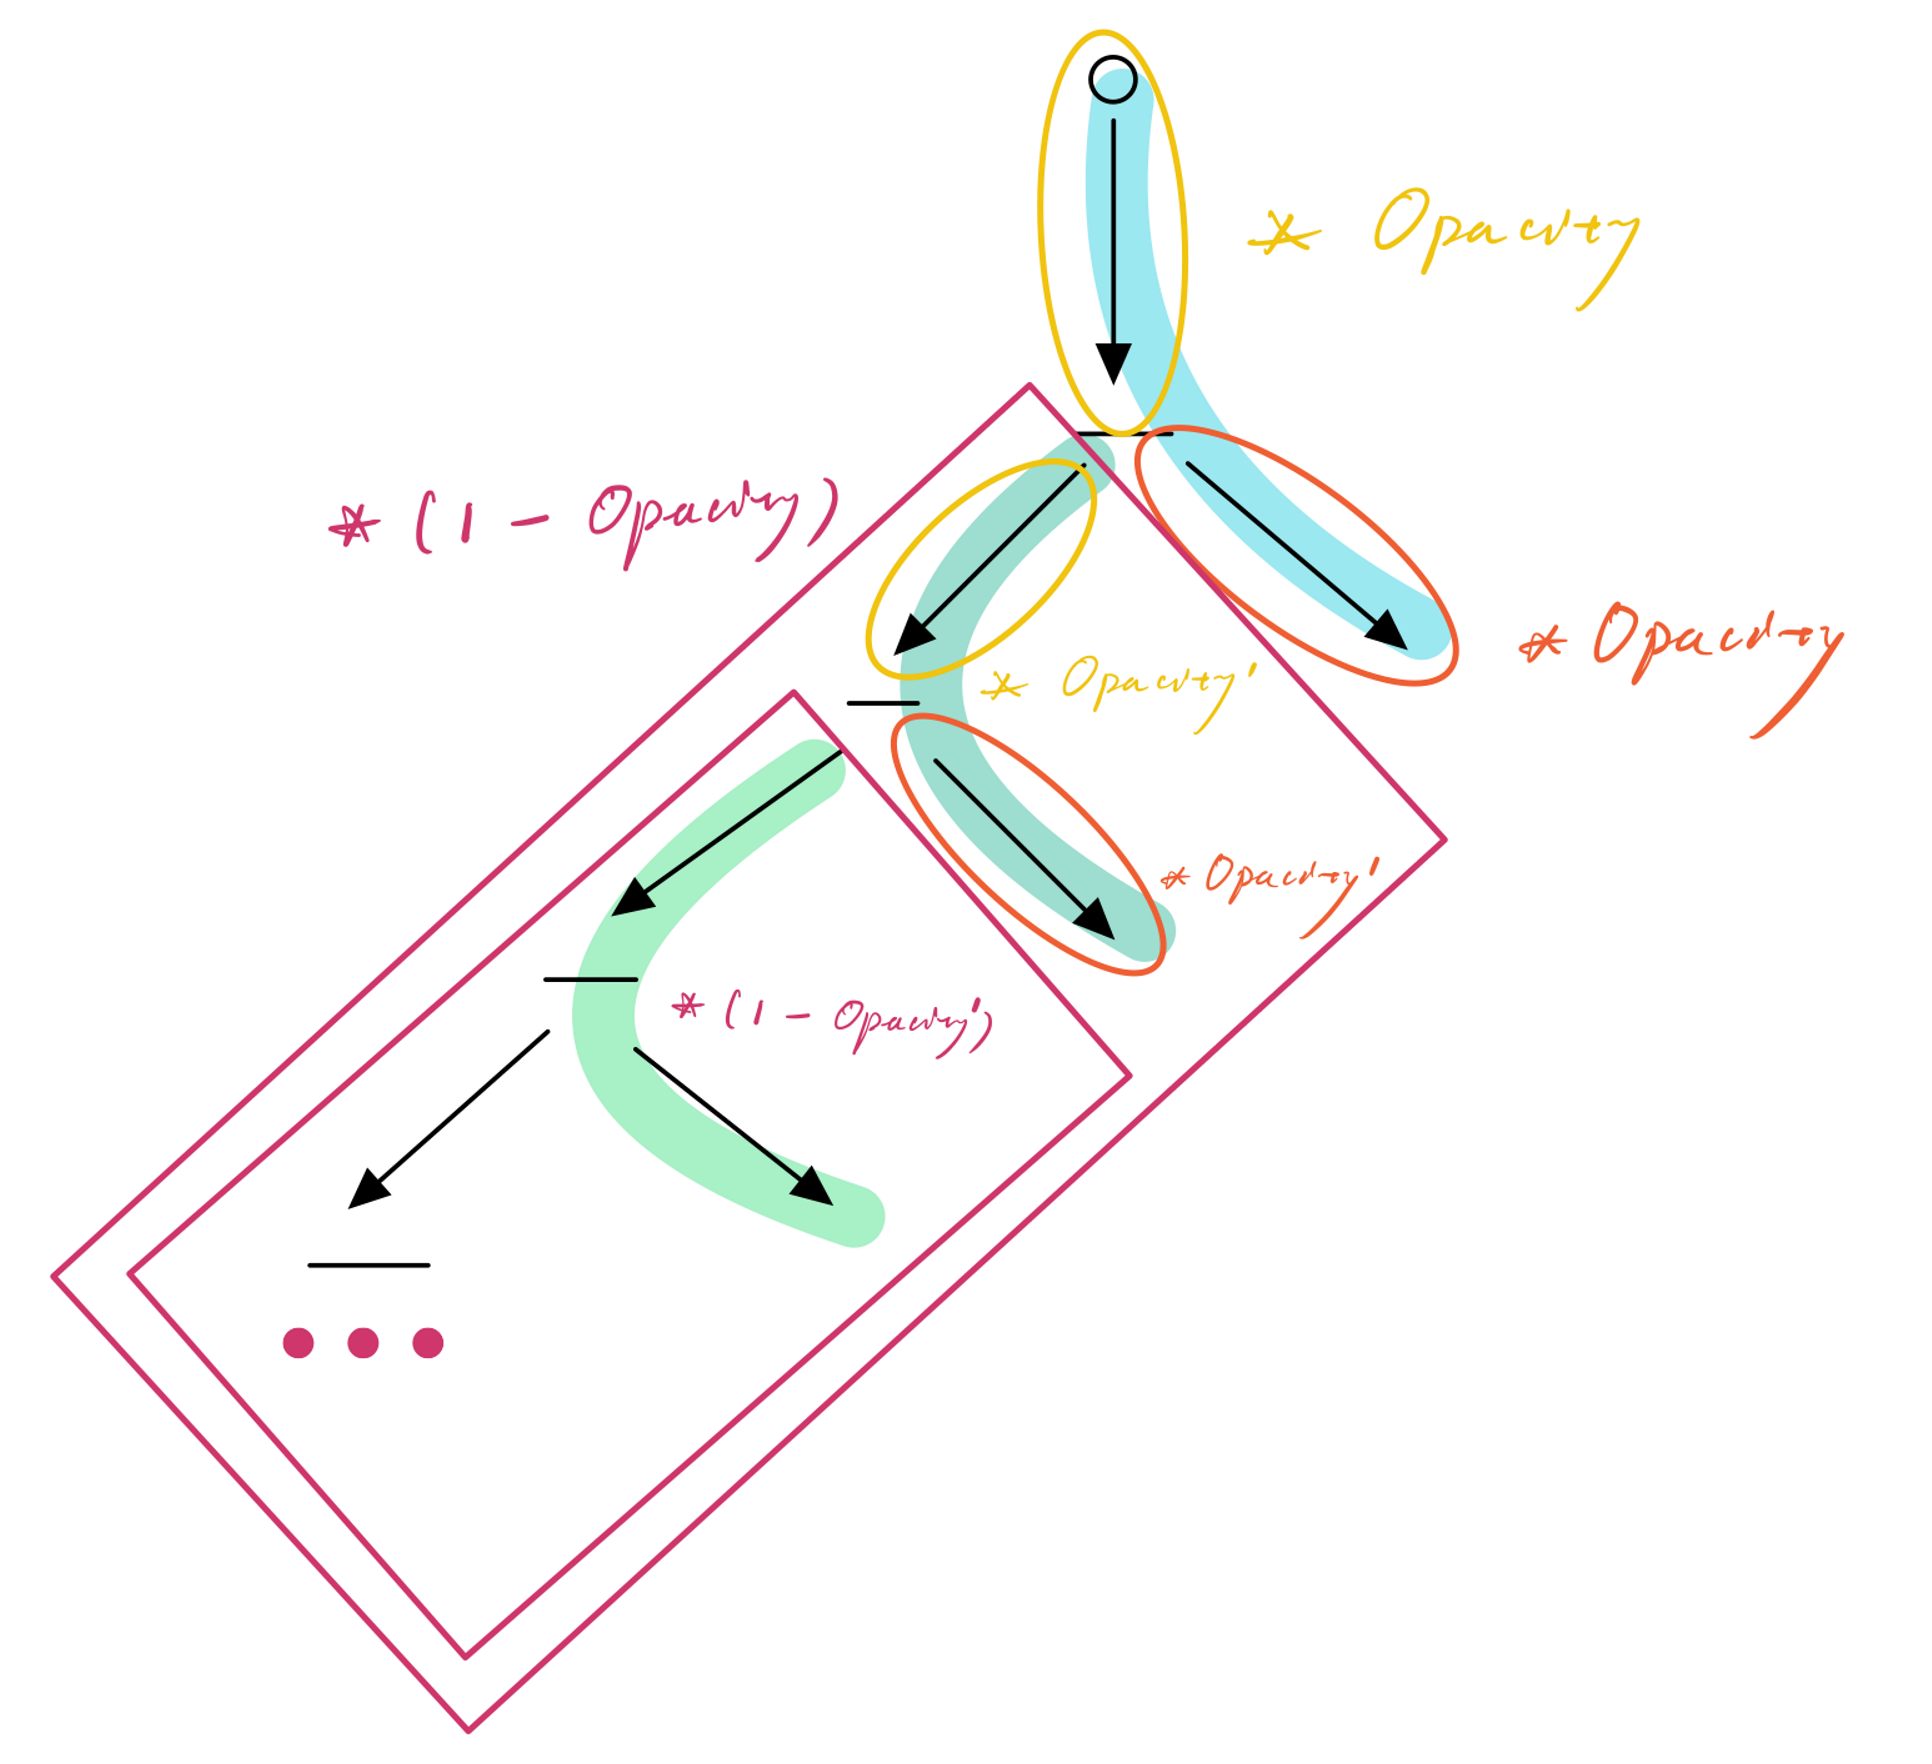 * Opacity
* (1 - Opacity)
* Opacity
* Opacity'
* Opacity'
* (1 - Opacity')